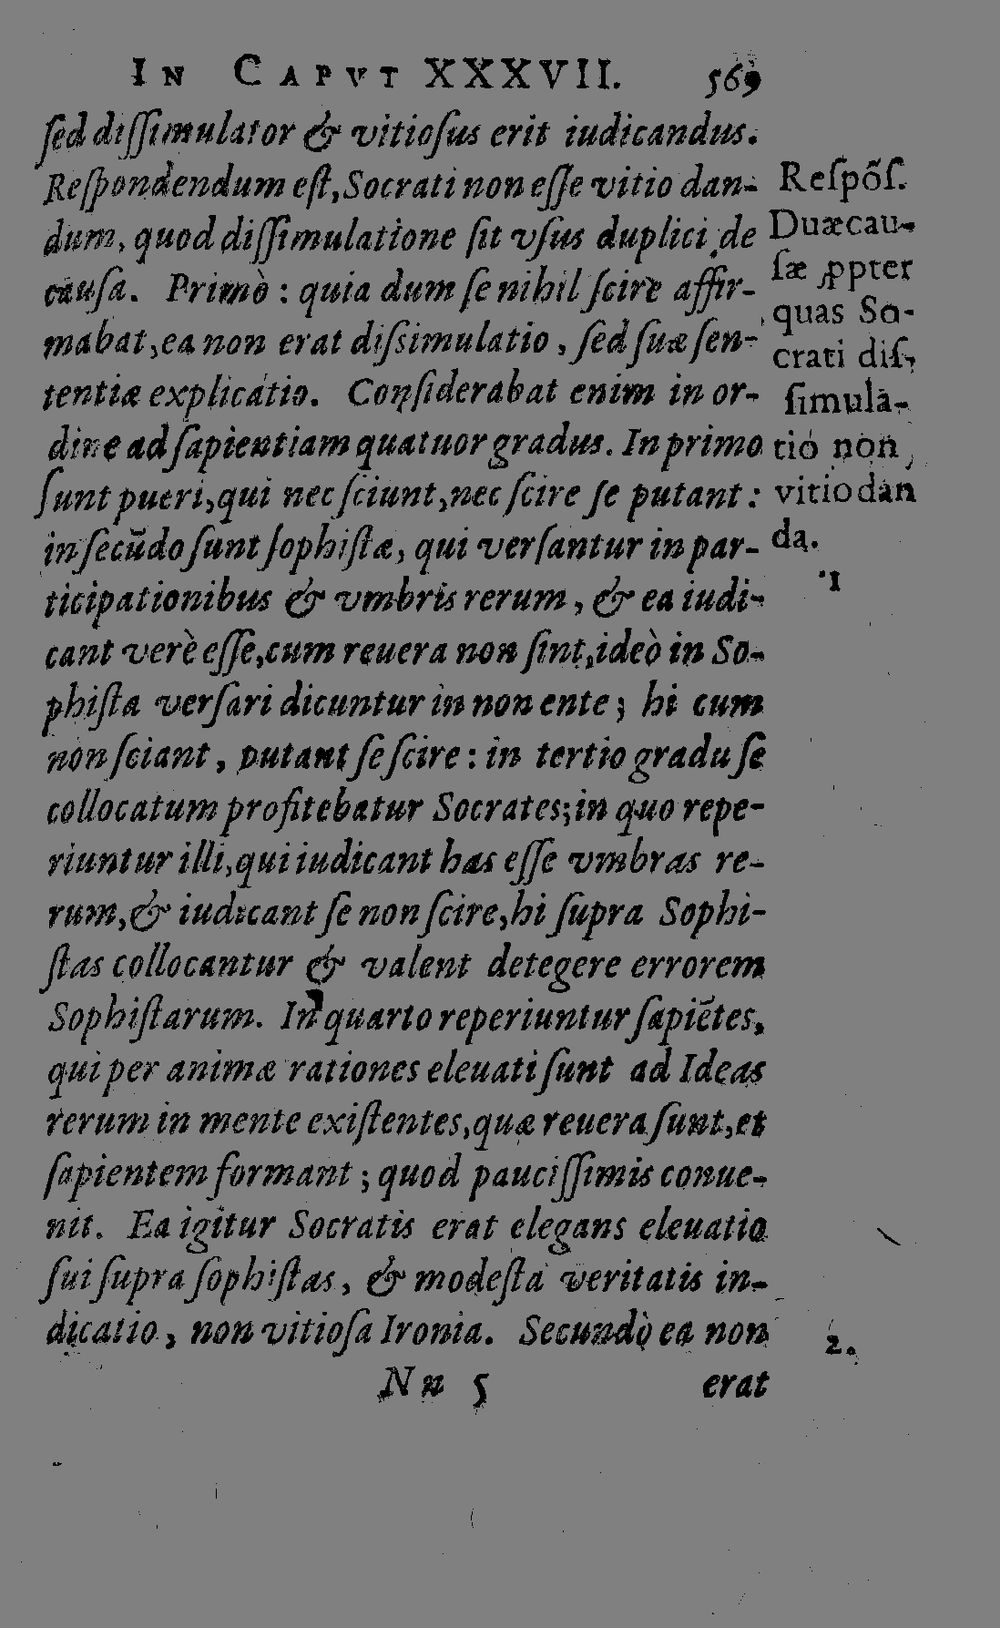 IN CAPVT XXXVII. 569
ſed diſſimulator & vitioſus erit iudicandus.
Reſpondendum eſt, Socrati non eſſe vitio dan-
dum, quod diſſimulatione ſit vſus duplici de
cauſa. Primò: quia dum ſe nihil ſcire affir-
mabat, ea non erat diſsimulatio, ſed ſuæ ſen-
tentiæ explicatio. Conſiderabat enim in or-
dine ad ſapientiam quatuor gradus. In primo
ſunt pueri, qui nec ſciunt, nec ſcire ſe putant:
in ſecũdo ſunt ſophiſtæ, qui verſantur in par-
ticipationibus & vmbris rerum, & ea iudi-
cant verè eſſe, cum reuera non ſint, ideò in So-
phiſta verſari dicuntur in non ente; hi cum
non ſciant, putant ſe ſcire: in tertio gradu ſe
collocatum profitebatur Socrates; in quo repe-
riuntur illi, qui iudicant has eſſe vmbras re-
rum, & iudicant ſe non ſcire, hi ſupra Sophi-
ſtas collocantur & valent detegere errorem
Sophiſtarum. In quarto reperiuntur ſapiẽtes,
qui per animæ rationes eleuati ſunt ad Ideas
rerum in mente exiſtentes, quæ reuera ſunt, et
ſapientem formant; quod pauciſſimis conue-
nit. Ea igitur Socratis erat elegans eleuatio
ſui ſupra ſophiſtas, & modeſta veritatis in-
dicatio, non vitioſa Ironia. Secundò ea non
Nn 5 erat
Reſpõſ.
Duæ cau-
ſæ ꝓpter
quas So-
crati diſ-
ſimula-
tio non
vitio dan
da.
1
2.